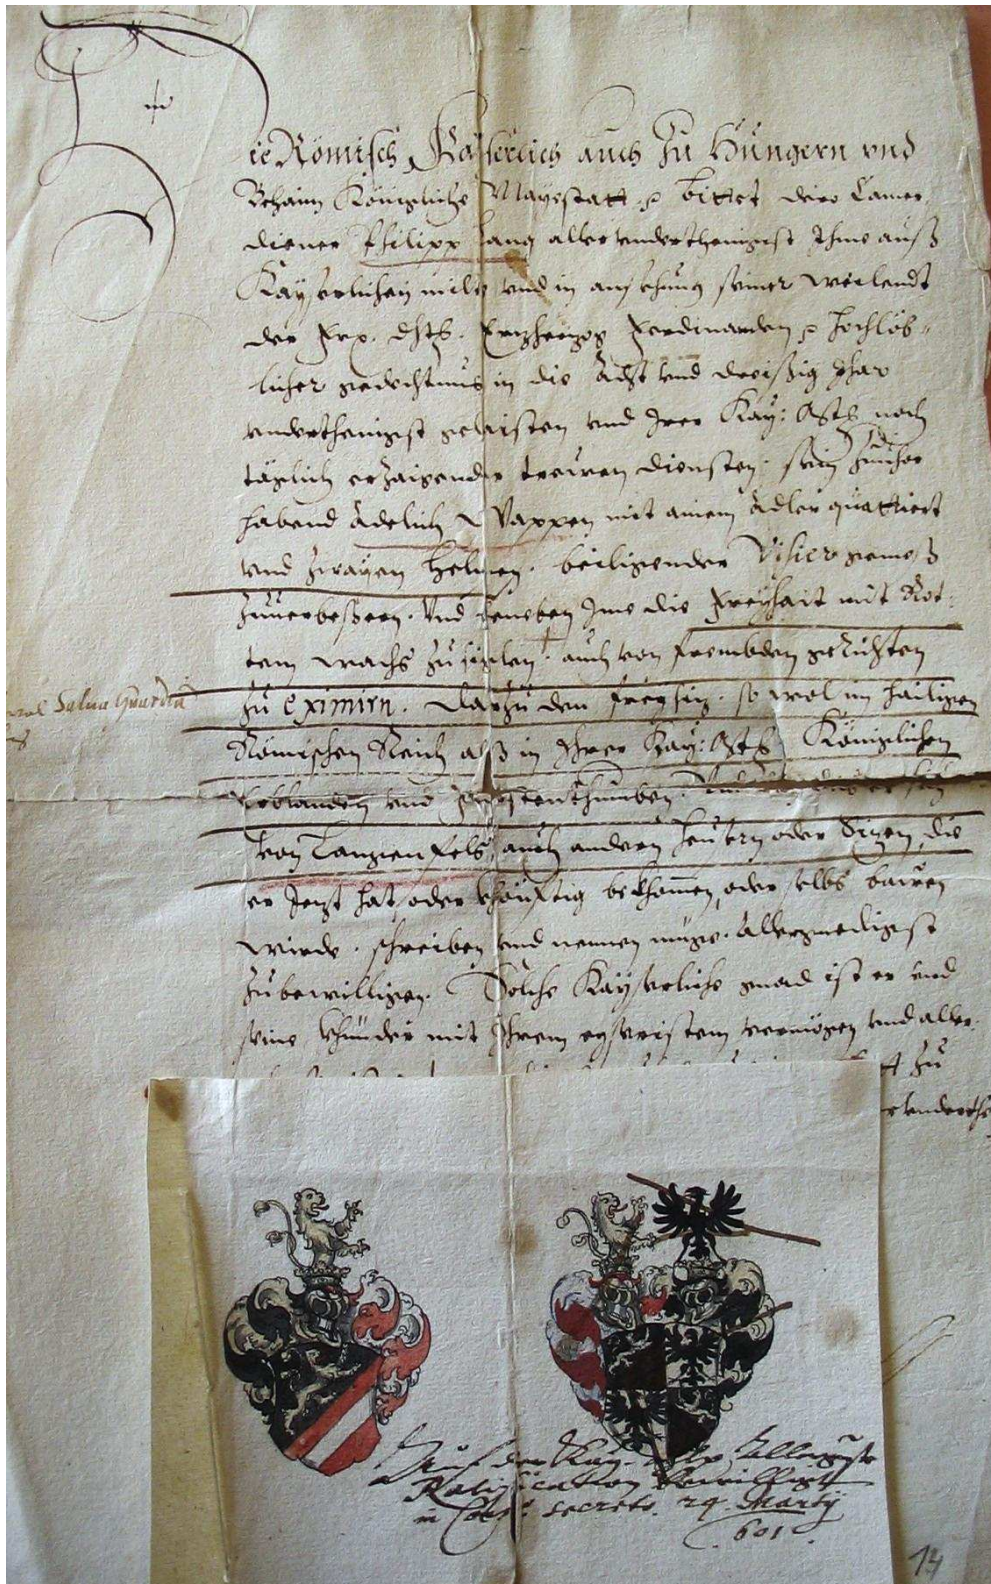 Die Römisch Kaÿserlich auch zu Hungern vnd
Behaim Königliche Mayestatt p bittet dero Camer
diener Philipp Lang allervnderthenigist Ihme auß
Kayserlichen milte vnd in ansehung seiner weilendt
der Frr. Dhtt. Erzherzog Ferdinanden p hochlöb-
licher gedechtnus in die Acht vnd dreissig Jhar
vnderthenigist gelaisten vnd Irer Kay: Mtt noch
täglich erzaigender treuren diensten. sein
habend Adelich Wappen mit ainem Adler quattiert
vnd zwayen Helmen. beiligender Visier gemeß
zuuerbeßern. Vnd beneben Ime die Freÿhait mit Rot-
tem wachs zu siglen. auch von frembden gerichten
zu eximirn. Darzu den freysiz. so wol im hailigen
Römischen Reich alß in Ihrer Kay: Mtt Königlichen
Erblanden vnd Fürstenthumben.
von Langenfels, auch andern heüsern oder Sizen, die
er Jezt hat, oder khönftig bekhommen, oder selbs bawen
wirde. schreiben vnd nennen müge. Allergnedigist
zubewilligen. Solche Kayserliche gnad ist er vnd
seine khinder mit Ihrem eyseristem vermögen vnd aller-
zu
Salua Guardia
Auf der Kay. Allergste
Ratification bewilligt
in Cons: secreto. 29. Martij
601.
14